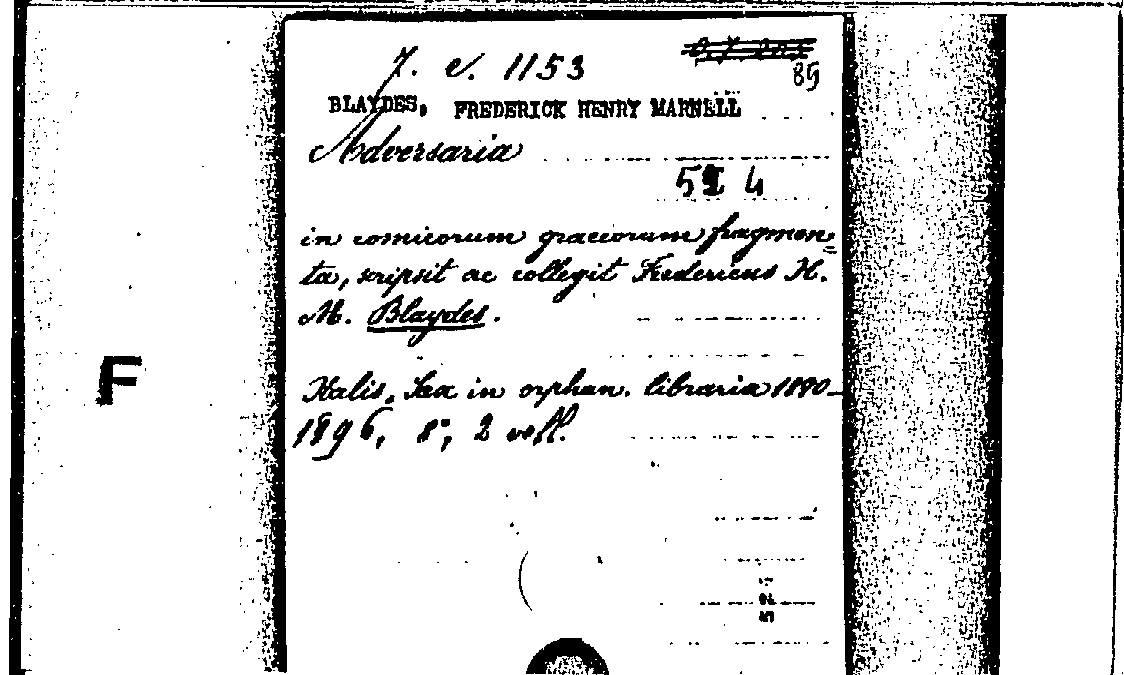 7. e. 1153
85
BLAYDES, FREDERICK HENRY MARNELL
Adversaria
in comicorum graecorum fragmen=
ta, scripsit ac collegit Fredericus H.
M. Blaydes.
F
Halis, Sax in orphan. libraria 1890-
1896, 8°, 2 voll.